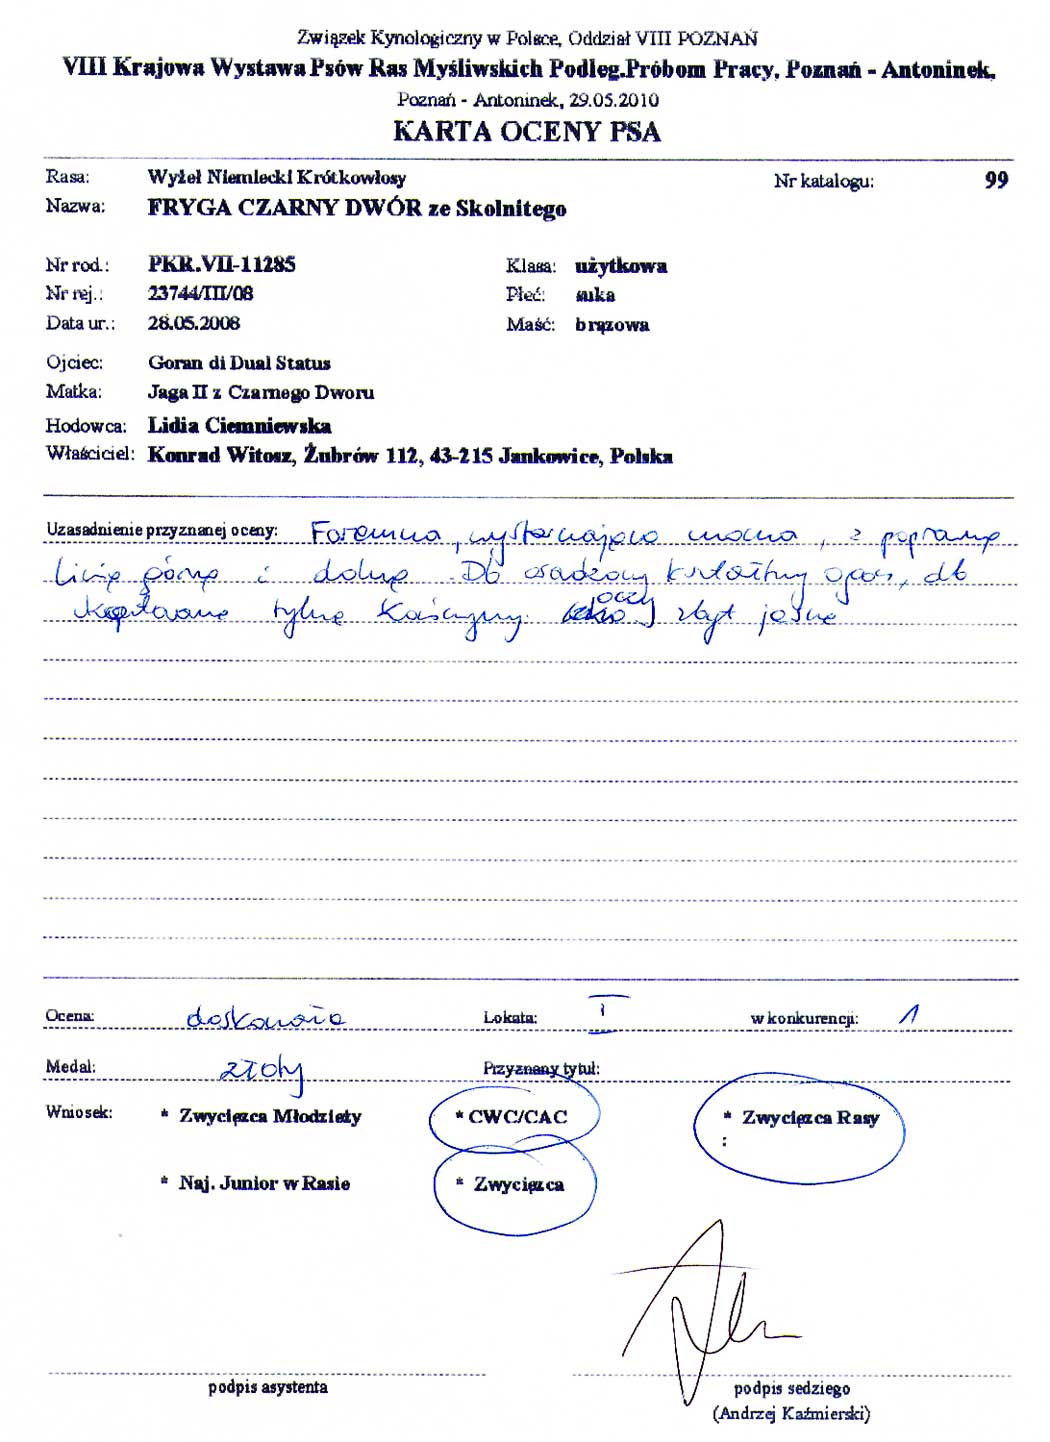 Związek Kynologiczny w Polsce, Oddział VIII POZNAŃ
VIII Krajowa Wystawa Psów Ras Myśliwskich Podleg.Próbom Pracy, Poznań - Antoninek.
Poznań - Antoninek, 29.05.2010
KARTA OCENY PSA
Rasa: Wyżeł Niemiecki Krótkowłosy Nr katalogu: 99
Nazwa: FRYGA CZARNY DWÓR ze Skolnitego
Nr rod.: PKR.VII-11285 Klasa: użytkowa
Nr rej.: 23744/III/08 Płeć: suka
Data ur.: 28.05.2008 Maść: brązowa
Ojciec: Goran di Dual Status
Matka: Jaga II z Czarnego Dworu
Hodowca: Lidia Ciemniewska
Właściciel: Konrad Witosz, Żubrów 112, 43-215 Jankowice, Polska
Uzasadnienie przyznanej oceny: Foremna, wystarczająco mocna, z poprawną
linią górną i dolną. Db osadzony kształtny ogon, db
kątowane tylne kończyny. oczy zbyt jasne
Ocena: doskonała Lokata: I w konkurencji: 1
Medal: złoty Przyznany tytuł:
Wniosek: * Zwycięzca Młodzieży * CWC/CAC * Zwycięzca Rasy
:
* Naj. Junior w Rasie * Zwycięzca
podpis asystenta podpis sedziego
(Andrzej Kaźmierski)